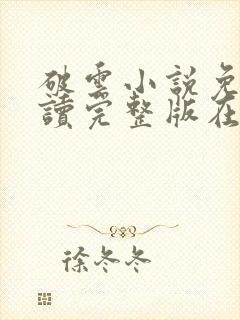 破雲小說免
讀完整版在
徐冬冬